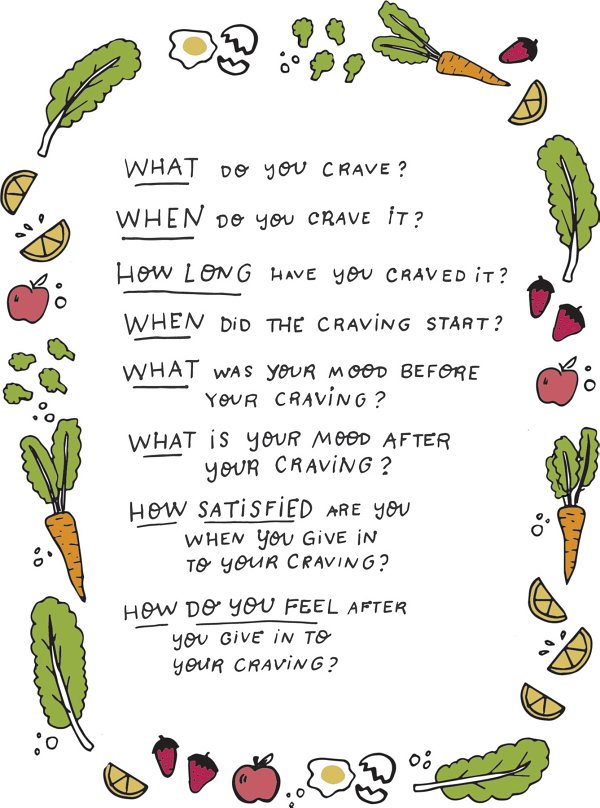 WHAT DO YOU CRAVE?
WHEN DO YOU CRAVE IT?
HOW LONG HAVE YOU CRAVED IT?
WHEN DID THE CRAVING START?
WHAT WAS YOUR MOOD BEFORE
YOUR CRAVING?
WHAT IS YOUR MOOD AFTER
YOUR CRAVING?
HOW SATISFIED ARE YOU
WHEN YOU GIVE IN
TO YOUR CRAVING?
HOW DO YOU FEEL AFTER
YOU GIVE IN TO
YOUR CRAVING?